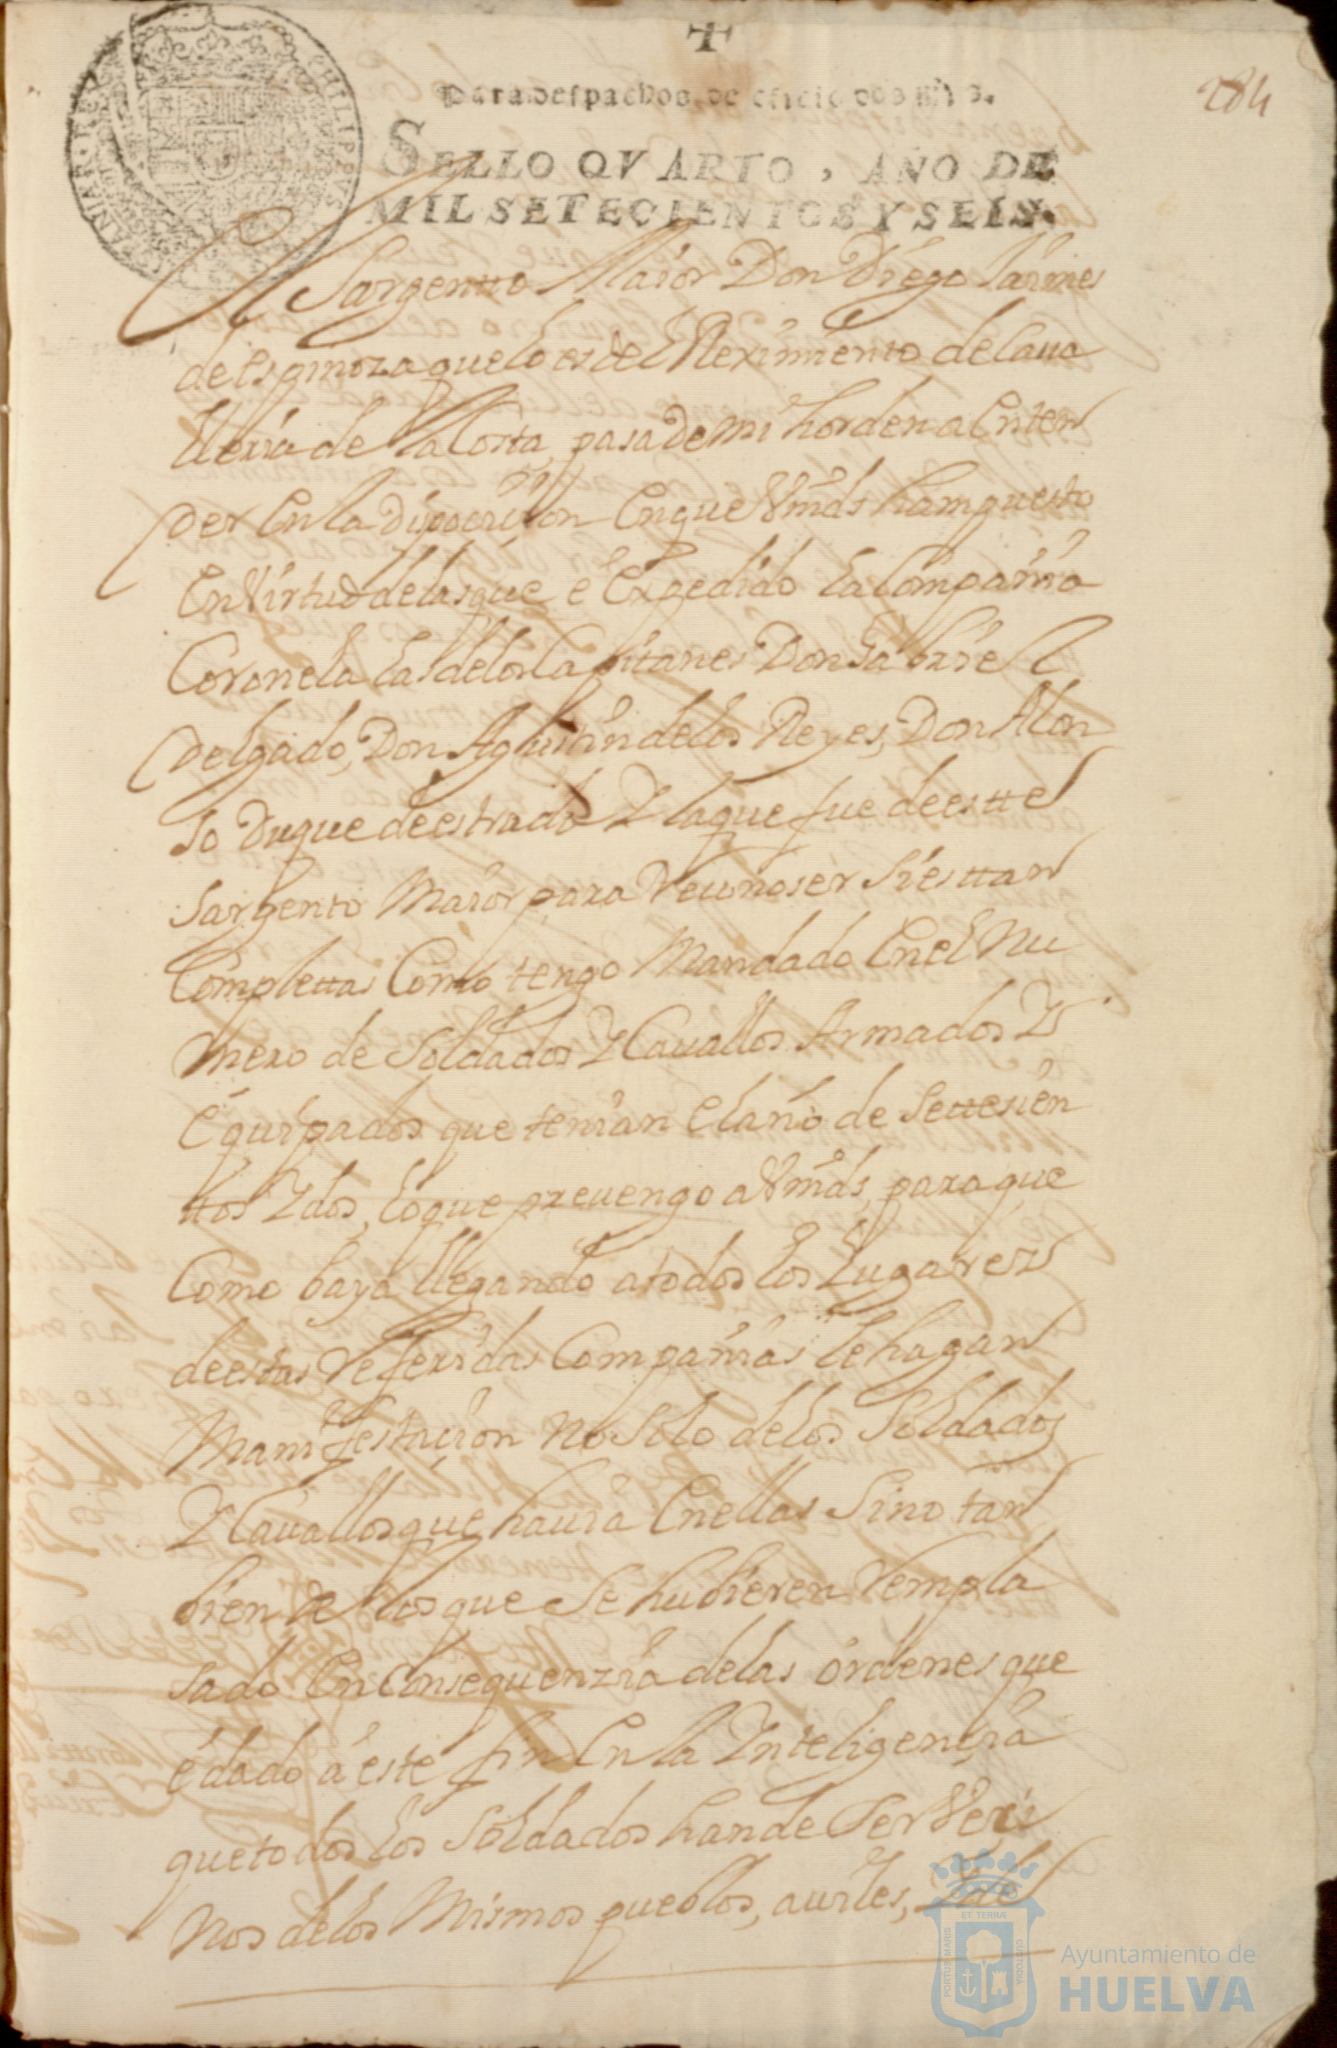 +
Para despachos de oficio dos mrs.
284
SELLO QVARTO, AÑO DE
MIL SETECIENTOS Y SEIS.
PHILIPPVS
El Sargentto Maior Don Diego Jaimes
de espinoza que lo es del Reximiento de Caua
lleria de la Costa, pasa de mi horden a Enten
der en la dispocision en que Vmds han puesto
en Virtud de las que e Expedido la Compañia
Coronela las de los Capitanes Don Gabriel
delgado, Don Aghustin de los Reyes, Don Alon
so Duque de estrada Y la que fue de estte
Sargento Maior para Reconoser si esttan
Complettas Como tengo Mandado En el Nu
mero de Soldados Y Cauallos Armados Y
equipados que tenian el año de Settesien
ttos Y dos, lo que prevengo a Vmds, para que
Como baya llegando a todos los Lugarez
de estas Referidas Compañias le hagan
Manifestacion no solo de los Soldados
Y Cauallos que hauia En ellas Sino tan
bien de los que se hubieren Rempla
sado En Consequenzia de las ordenes que
e dado a este fin En la Inteligencia
que todos los Soldados han de ser Veci
nos de los Mismos pueblos, auiles,
PORTUS MARIS
ET TERRÆ
CUSTODIA
Ayuntamiento de
HUELVA